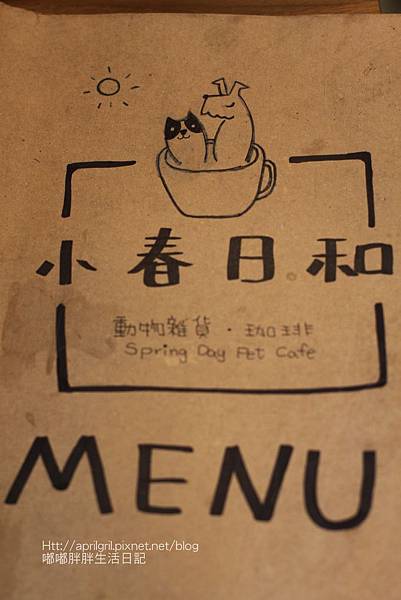 小春日和
動物雜貨·珈琲
Spring Day Pet Cafe
MENU
Htt://aprilgril.pixnet.net/blog
嘟嘟胖胖生活日記